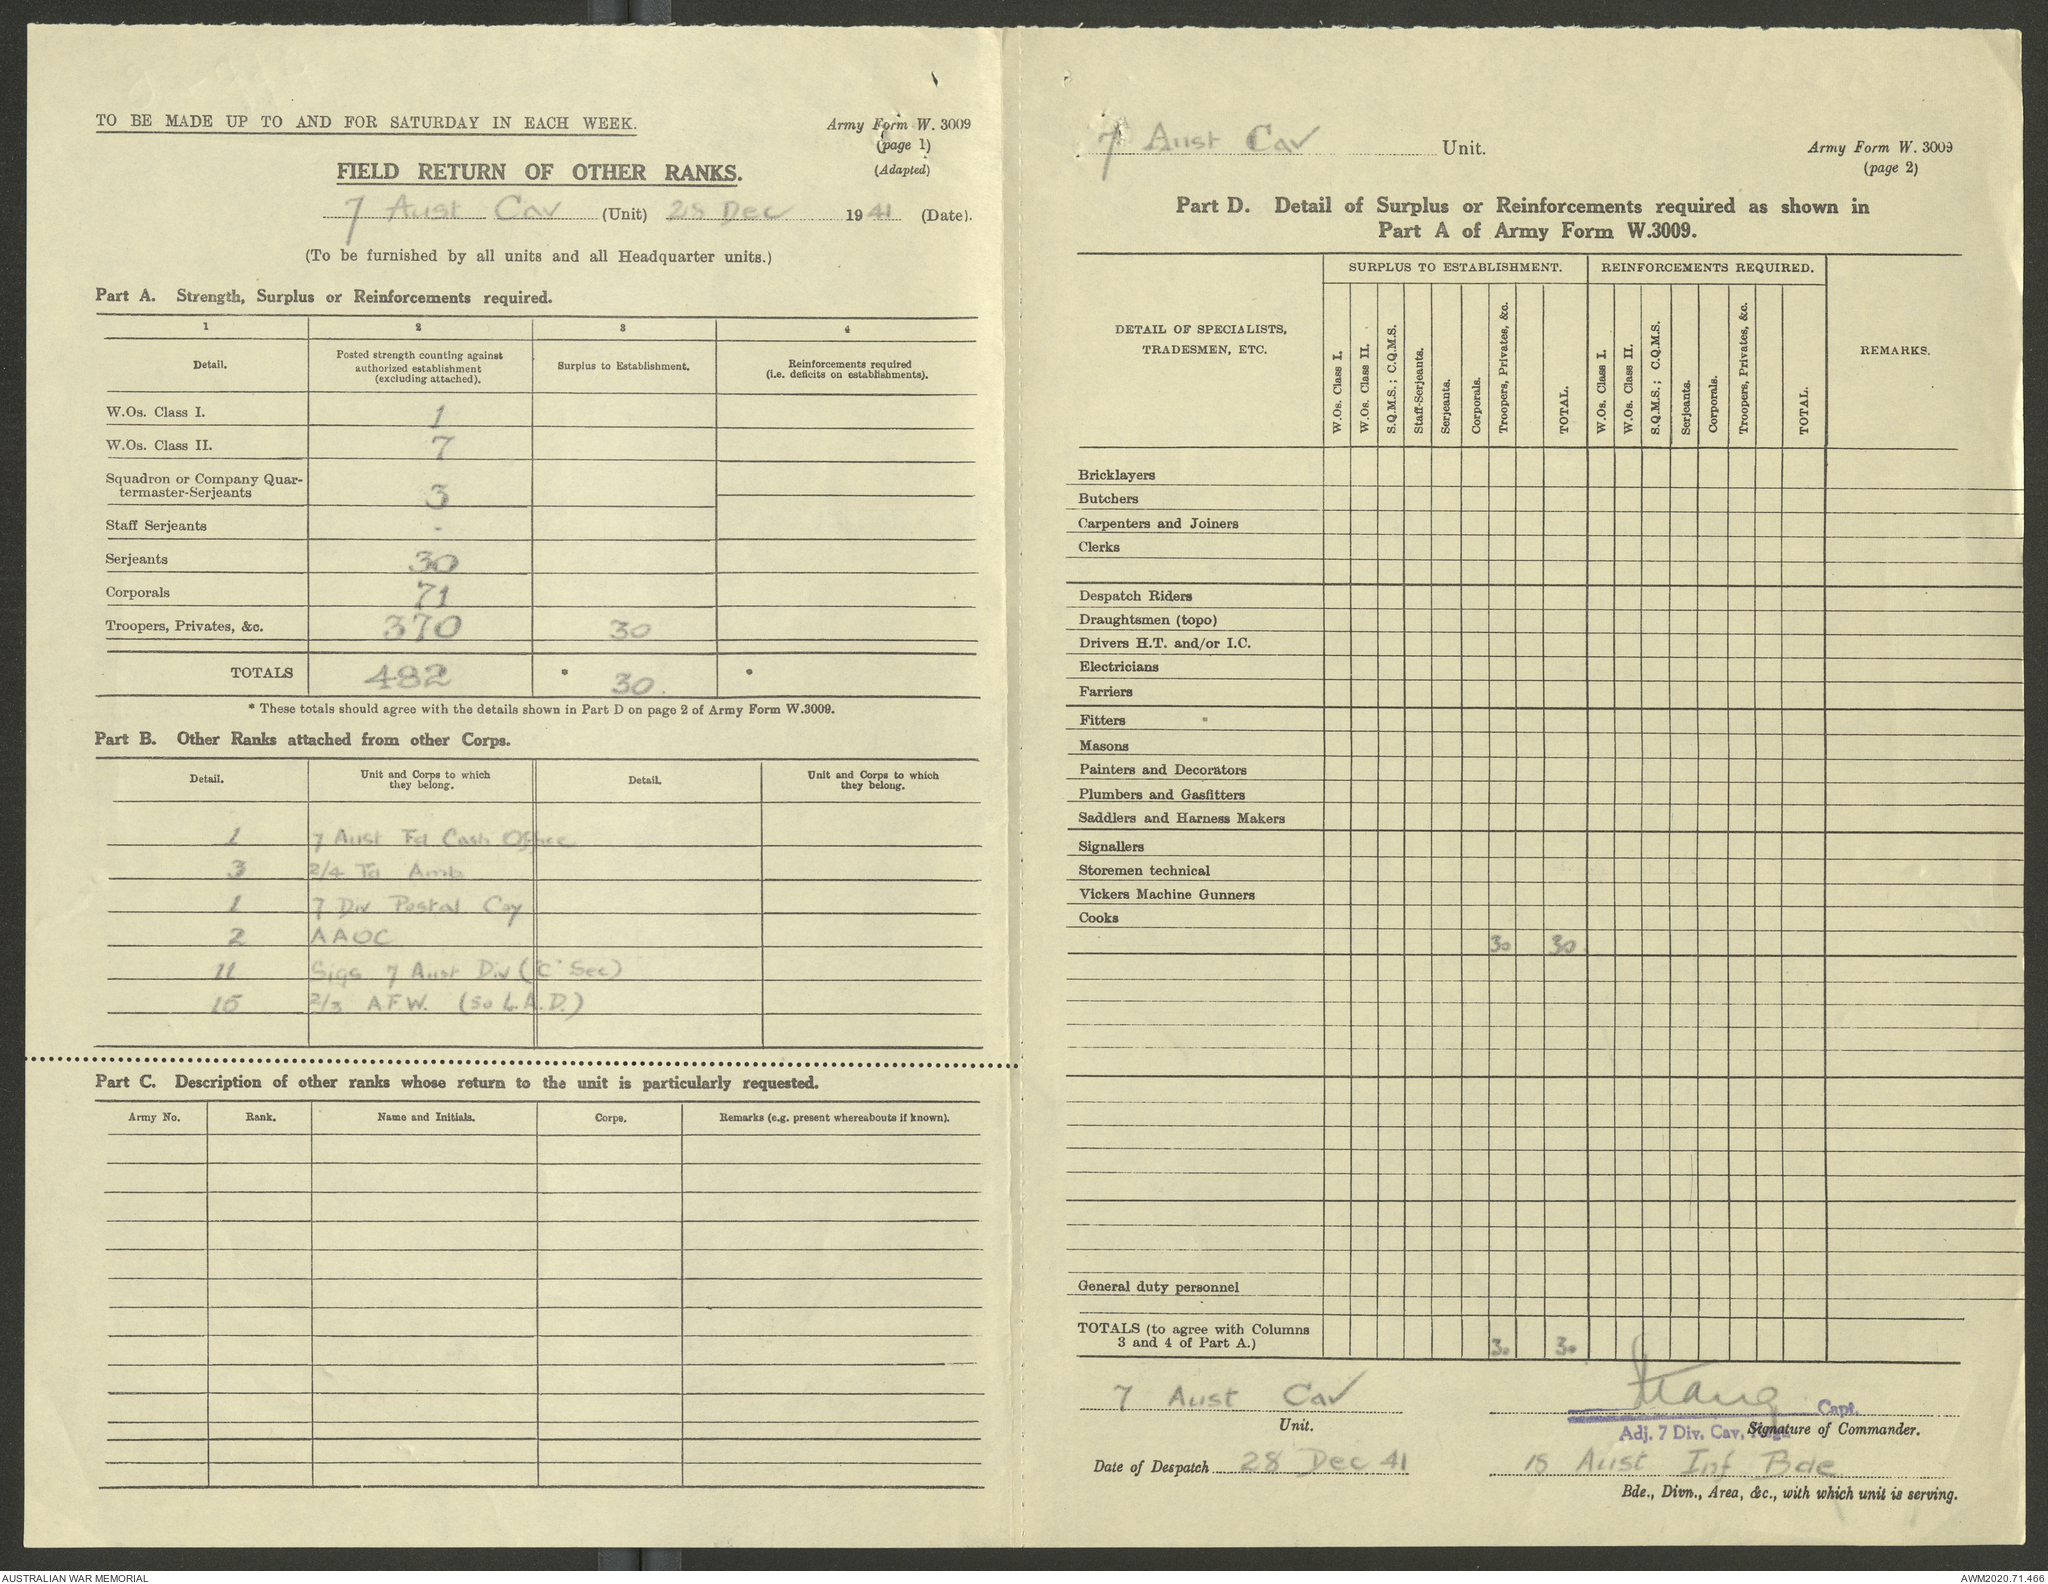 TO BE MADE UP TO AND FOR SATURDAY IN EACH WEEK.
Army Form W. 3009
(page 1)
(Adapted)
FIELD RETURN OF OTHER RANKS.
7 Aust Cav (Unit) 28 Dec 1941 (Date).
(To be furnished by all units and all Headquarter units.)
Part A. Strength, Surplus or Reinforcements required.
1 2 3 4
Detail. Posted strength counting against authorized establishment (excluding attached). Surplus to Establishment. Reinforcements required (i.e. deficits on establishments).
W.Os. Class I. 1
W.Os. Class II. 7
Squadron or Company Quar-
termaster-Serjeants 3
Staff Serjeants -
Serjeants 30
Corporals 71
Troopers, Privates, &c. 370 30
TOTALS 482 * 30. *
* These totals should agree with the details shown in Part D on page 2 of Army Form W.3009.
Part B. Other Ranks attached from other Corps.
Detail. Unit and Corps to which they belong. Detail. Unit and Corps to which they belong.
1 7 Aust Fd Cash Office
3 2/4 Fd Amb
1 7 Div Postal Coy
2 AAOC
11 Sigs 7 Aust Div ("C" Sec)
15 2/3 A.F.W. (50 L.A.D.)
Part C. Description of other ranks whose return to the unit is particularly requested.
Army No. Rank. Name and Initials. Corps. Remarks (e.g. present whereabouts if known).
7 Aust Cav Unit.
Army Form W. 3009
(page 2)
Part D. Detail of Surplus or Reinforcements required as shown in
Part A of Army Form W.3009.
SURPLUS TO ESTABLISHMENT. REINFORCEMENTS REQUIRED.
DETAIL OF SPECIALISTS,
TRADESMEN, ETC.
W.Os. Class I.
W.Os. Class II.
S.Q.M.S.; C.Q.M.S.
Staff-Serjeants.
Serjeants.
Corporals.
Troopers, Privates, &c.
TOTAL.
W.Os. Class I.
W.Os. Class II.
S.Q.M.S.; C.Q.M.S.
Serjeants.
Corporals.
Troopers, Privates, &c.
TOTAL.
REMARKS.
Bricklayers
Butchers
Carpenters and Joiners
Clerks
Despatch Riders
Draughtsmen (topo)
Drivers H.T. and/or I.C.
Electricians
Farriers
Fitters
Masons
Painters and Decorators
Plumbers and Gasfitters
Saddlers and Harness Makers
Signallers
Storemen technical
Vickers Machine Gunners
Cooks
30 30.
General duty personnel
TOTALS (to agree with Columns
3 and 4 of Part A.) 30 30
7 Aust Cav
Unit.
Capt.
Adj. 7 Div. Cav.
Signature of Commander.
Date of Despatch 28 Dec 41
18 Aust Inf Bde
Bde., Divn., Area, &c., with which unit is serving.
AUSTRALIAN WAR MEMORIAL
AWM2020.71.466